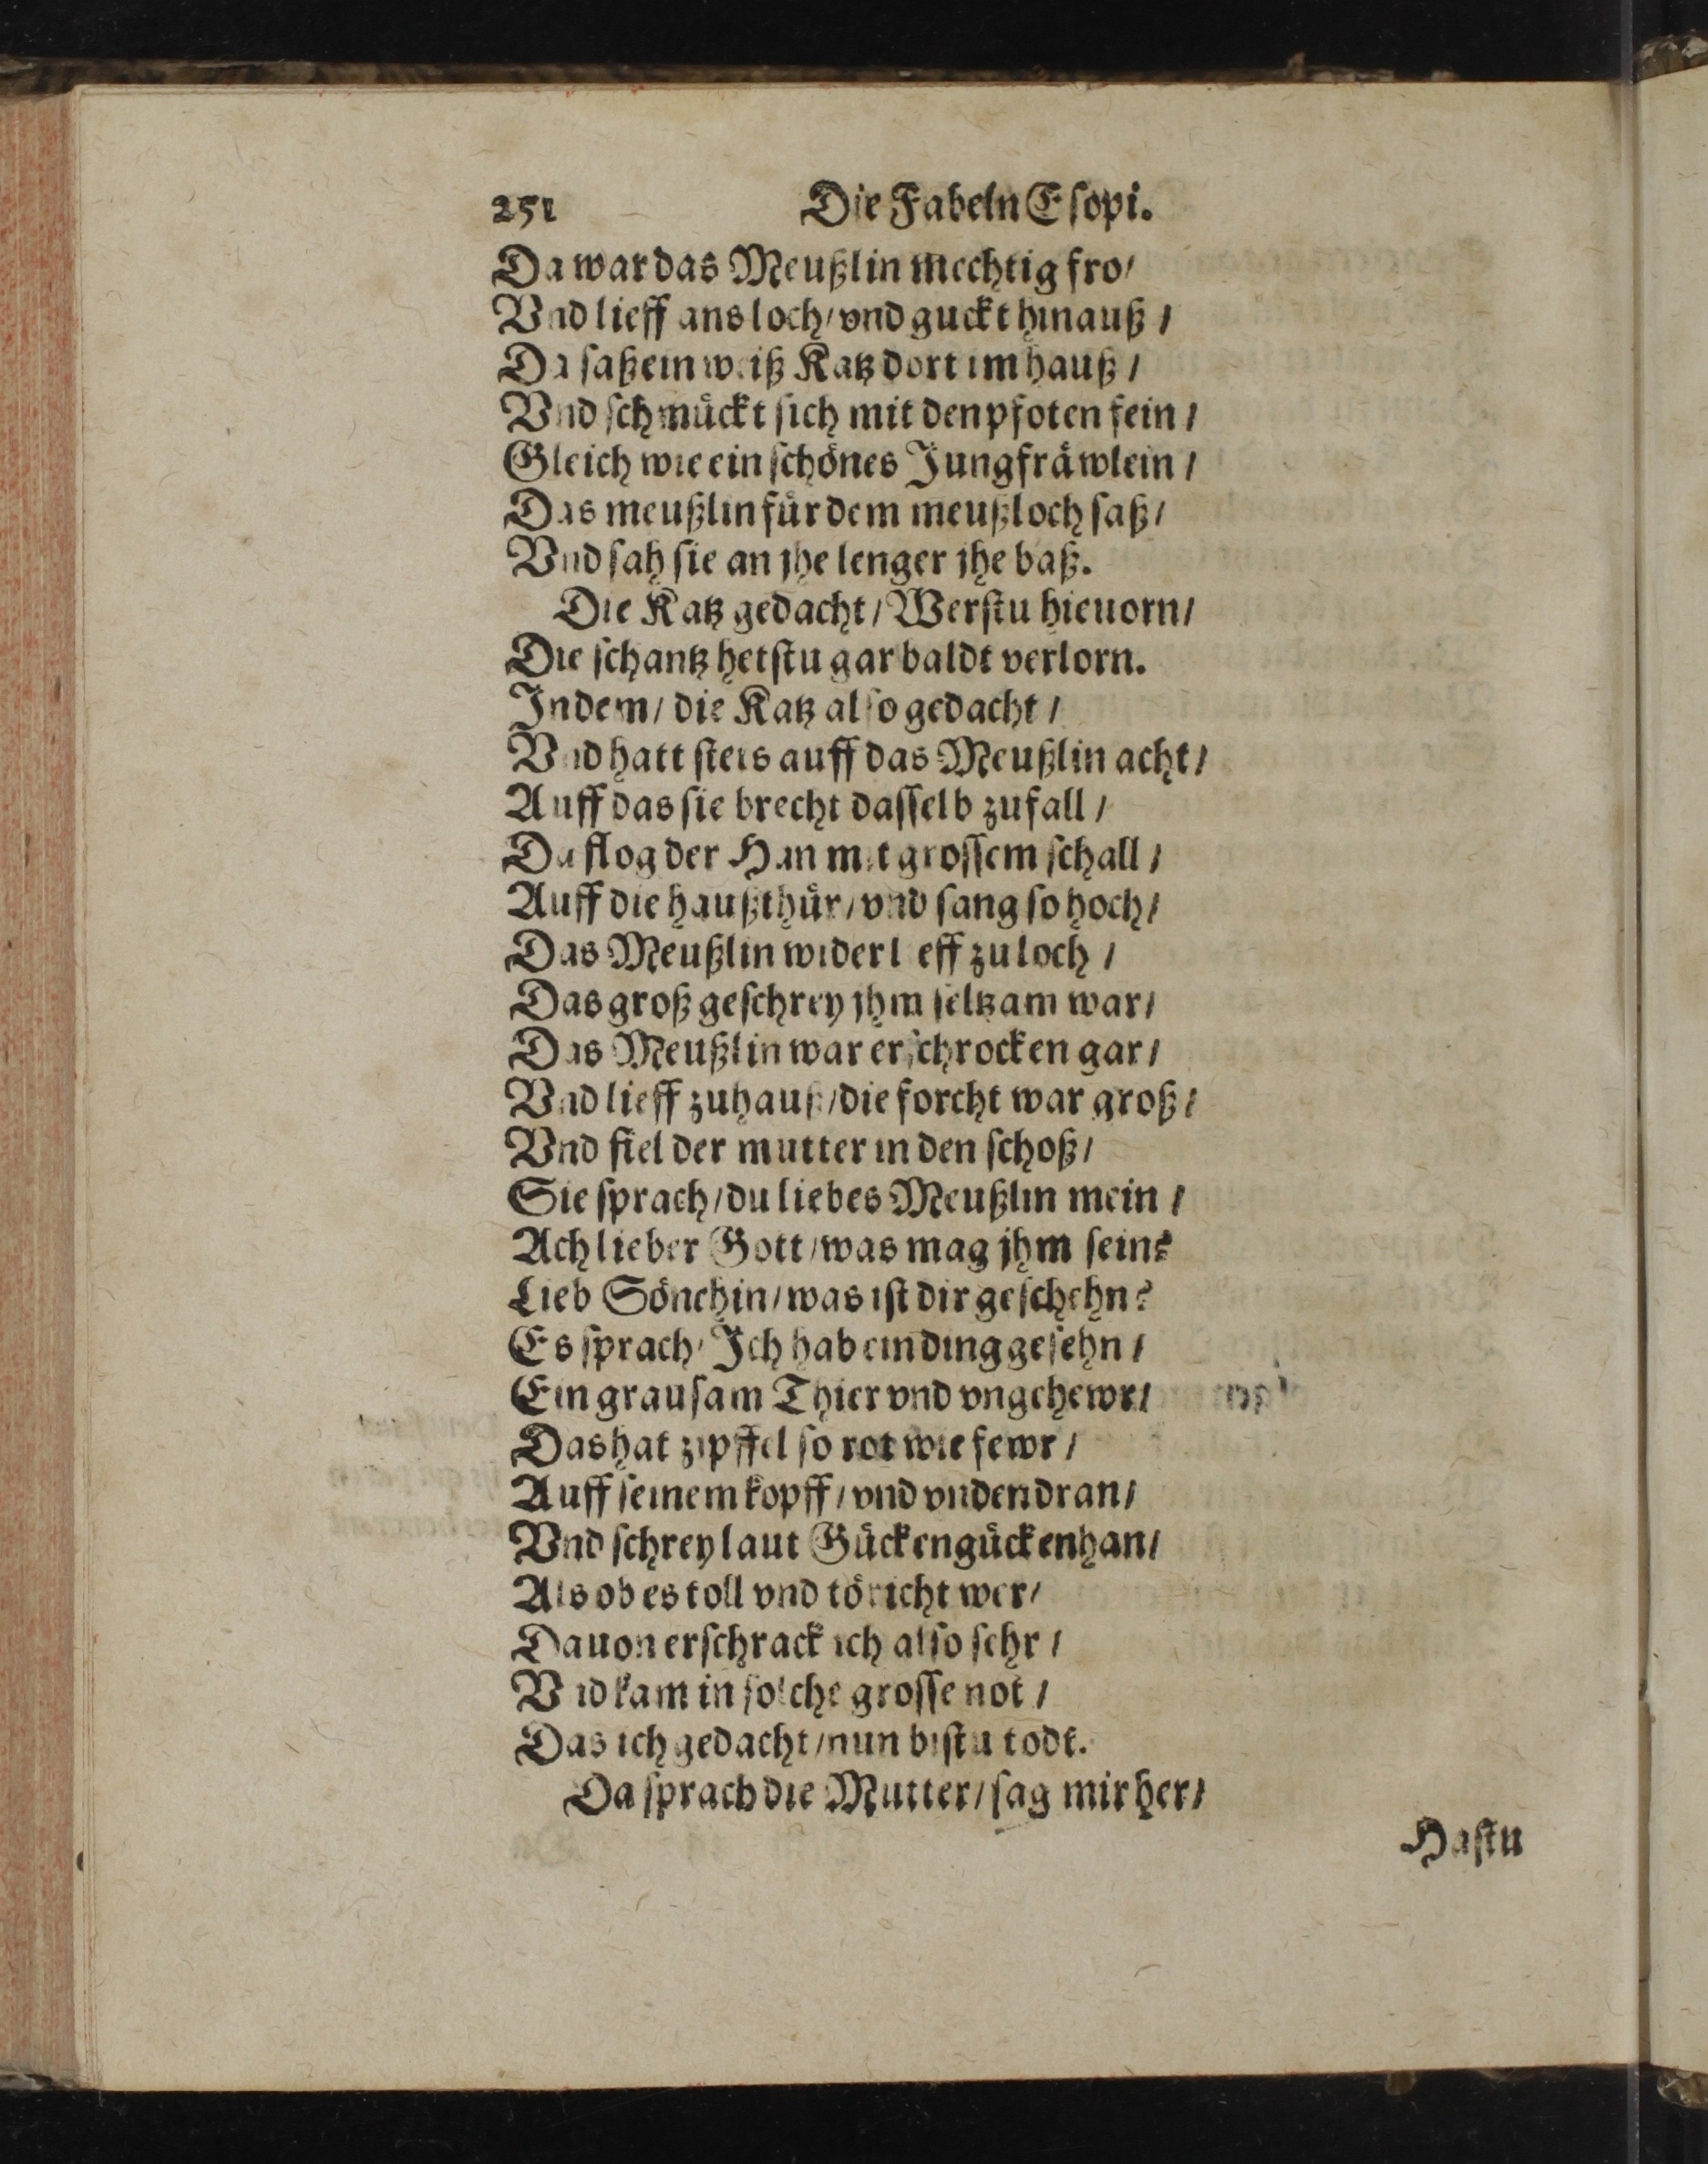 251 Die Fabeln Eſopi.
Da war das Meußlin mechtig fro/
Vnd lieff ans loch/ vnd guckt hinauß /
Da ſaß ein weiß Katz dort im hauß /
Vnd ſchmuͤckt ſich mit den pfoten fein /
Gleich wie ein ſchoͤnes Jungfraͤwlein /
Das meußlin fuͤr dem meußloch ſaß /
Vnd ſah ſie an jhe lenger jhe baß.
Die Katz gedacht / Werſtu hieuorn /
Die ſchantz hetſtu gar baldt verlorn.
Indem / die Katz alſo gedacht /
Vnd hatt ſtets auff das Meußlin acht /
Auff das ſie brecht daſſelb zufall /
Da flog der Han mit groſſem ſchall /
Auff die haußthuͤr / vnd ſang ſo hoch /
Das Meußlin widerlieff zu loch /
Das groß geſchrey jhm ſeltzam war /
Das Meußlin war erſchrocken gar /
Vnd lieff zuhauß / die forcht war groß /
Vnd fiel der mutter in den ſchoß /
Sie ſprach / du liebes Meußlin mein /
Ach lieber Gott / was mag jhm ſein?
Lieb Soͤnchin / was iſt dir geſchehn?
Es ſprach / Ich hab ein ding geſehn /
Ein grauſam Thier vnd vngehewr /
Das hat zipffel ſo rot wie fewr /
Auff ſeinem kopff / vnd vnden dran /
Vnd ſchrey laut Guͤckenguͤckenhan /
Als ob es toll vnd toͤricht wer /
Dauon erſchrack ich alſo ſehr /
Vnd kam in ſolche groſſe not /
Das ich gedacht / nun biſtu todt.
Da ſprach die Mutter / ſag mir her /
Haſtu